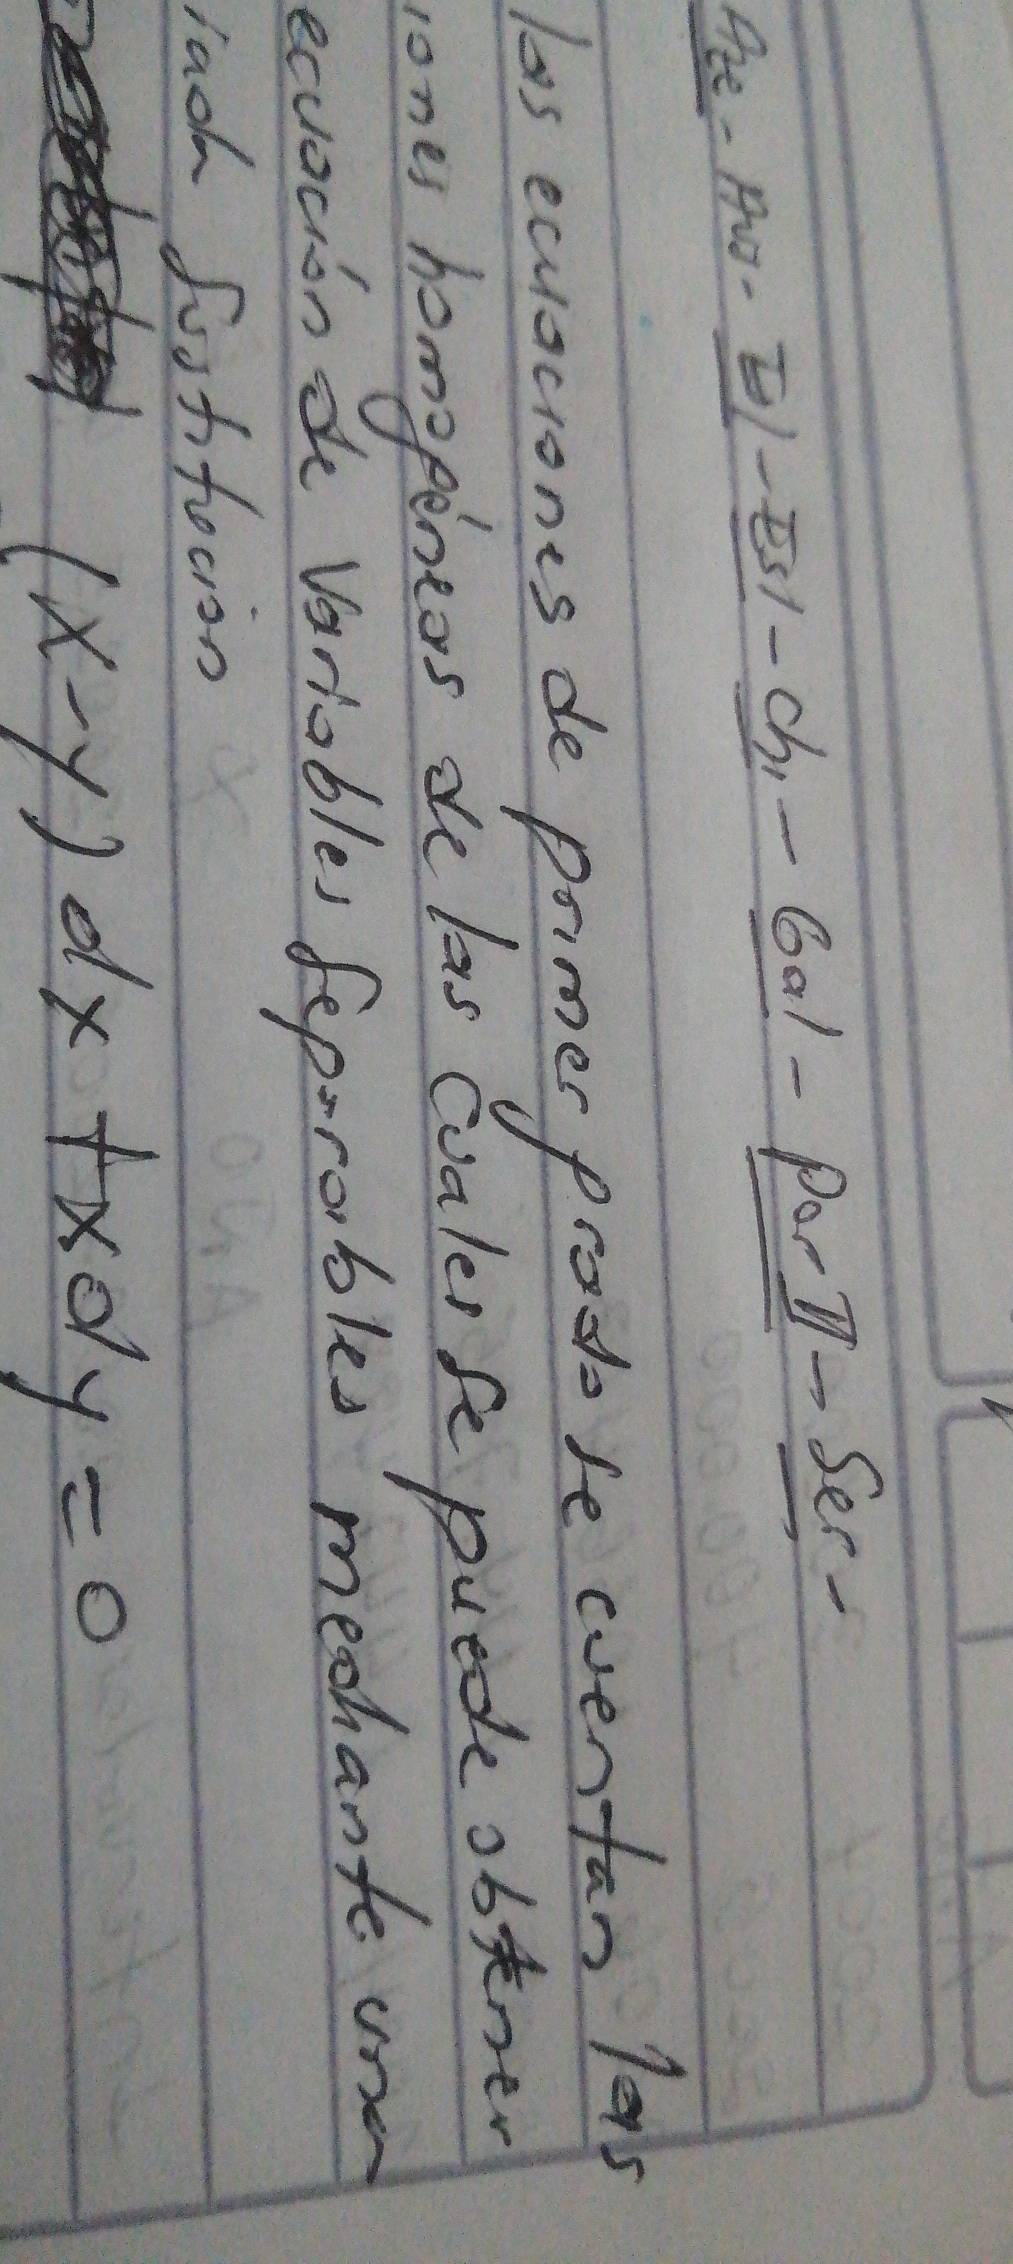 Aze - Avo - El - Esl - Chi - Gal - Por II - Ser -
las ecuaciones de primer prado se cuentan las
iones homogéneas de las cuales se puede obtener
ecuación de variables separables mediante una
iada sustitucion
(x-y)dx+xdy=0